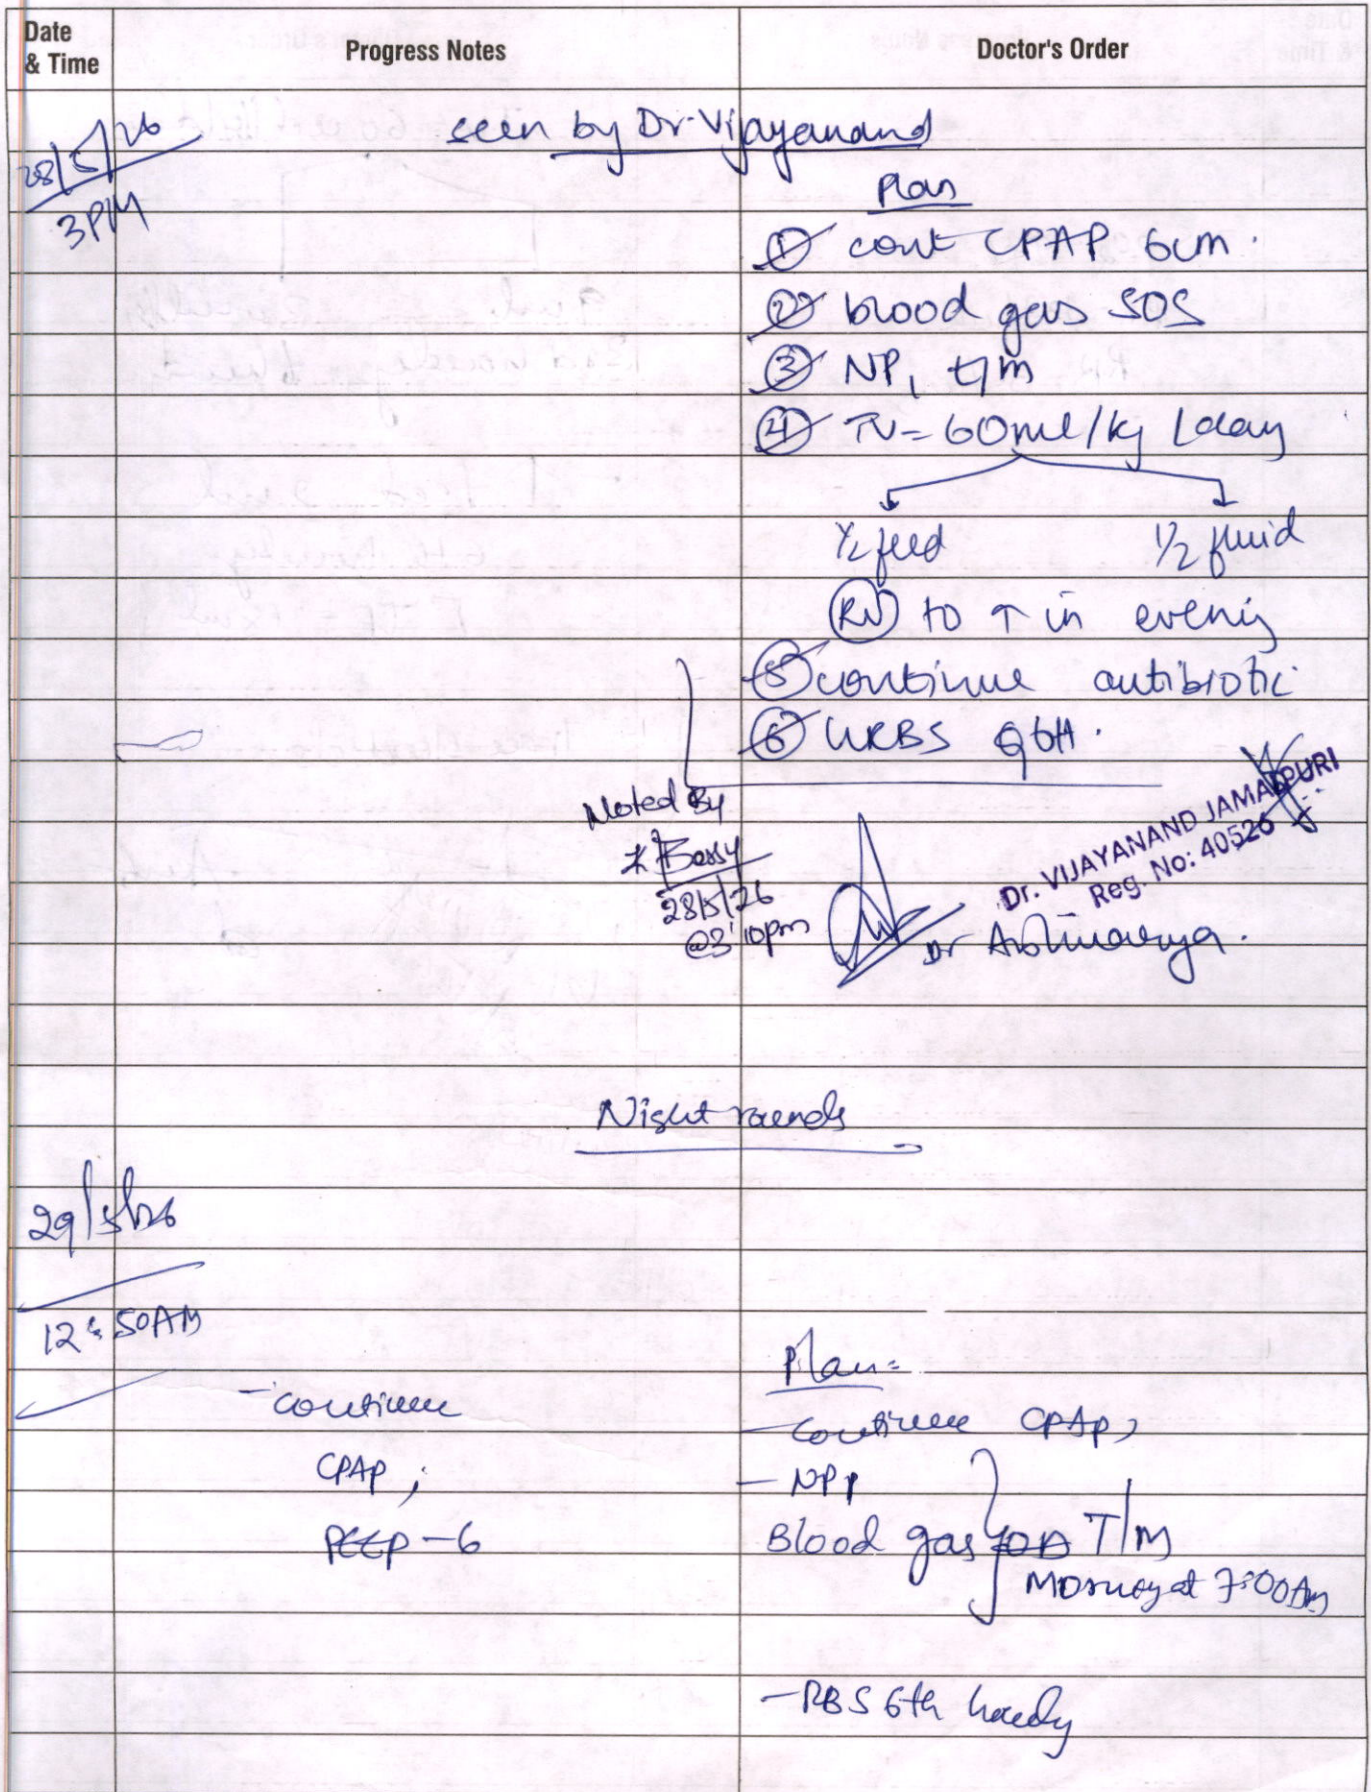 Date
& Time
Progress Notes
Doctor's Order
28/5/26
3PM
seen by Dr. Vijayanand
Plan
① cont CPAP 6cm.
② blood gas SOS
③ NP1 t/m
④ TV = 60ml/kg/day
1/2 feed 1/2 fluid
RV to ↑ in evenig
⑤ continue antibiotic
⑥ GRBS Q6H.
Noted By
28/5/26
@3:10pm
Dr. VIJAYANAND JAMALPURI
Reg. No: 40526
Dr
Night rounds
29/5/26
12:50AM
- continue
CPAP ;
PEEP - 6
Plan=
- Continue CPAP,
- NP1
Blood gas T/M
Morning at 7:00AM
- RBS 6th hourly